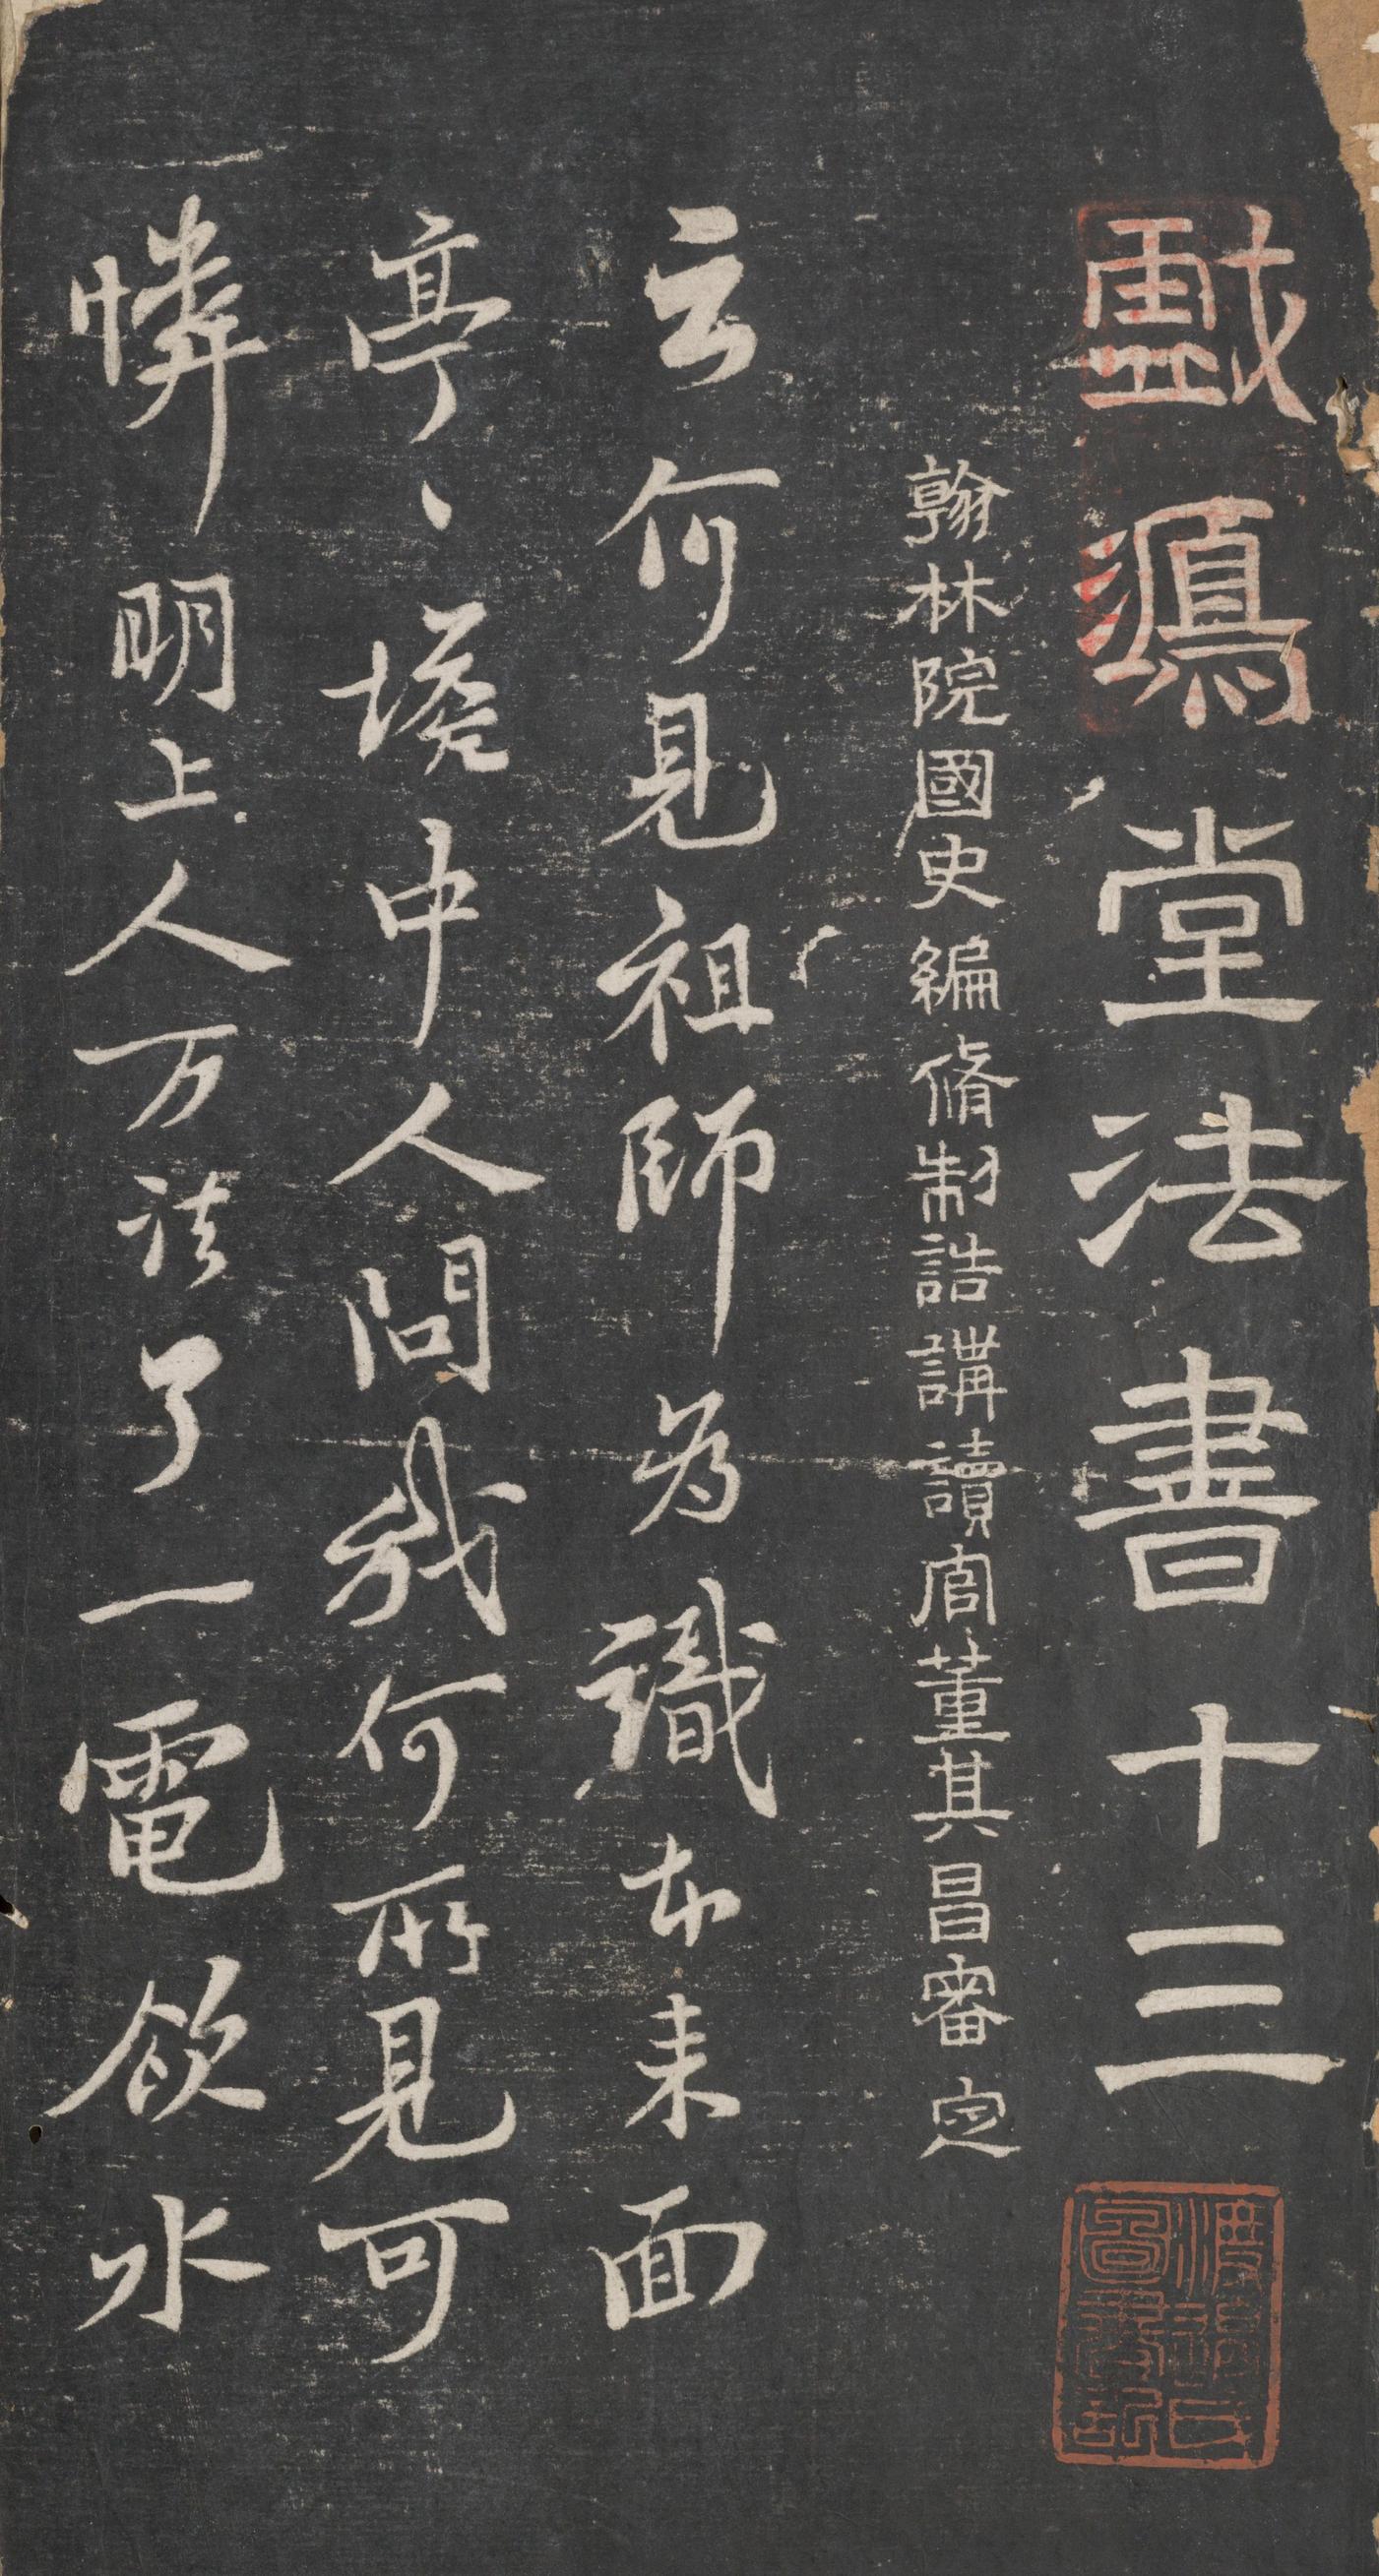 戲鴻堂法書十三
翰林院國史編脩制誥講讀官董其昌審定
云何見祖師為識本来面
亭、塔中人問我何所見可
憐明上人万法了一電飲水